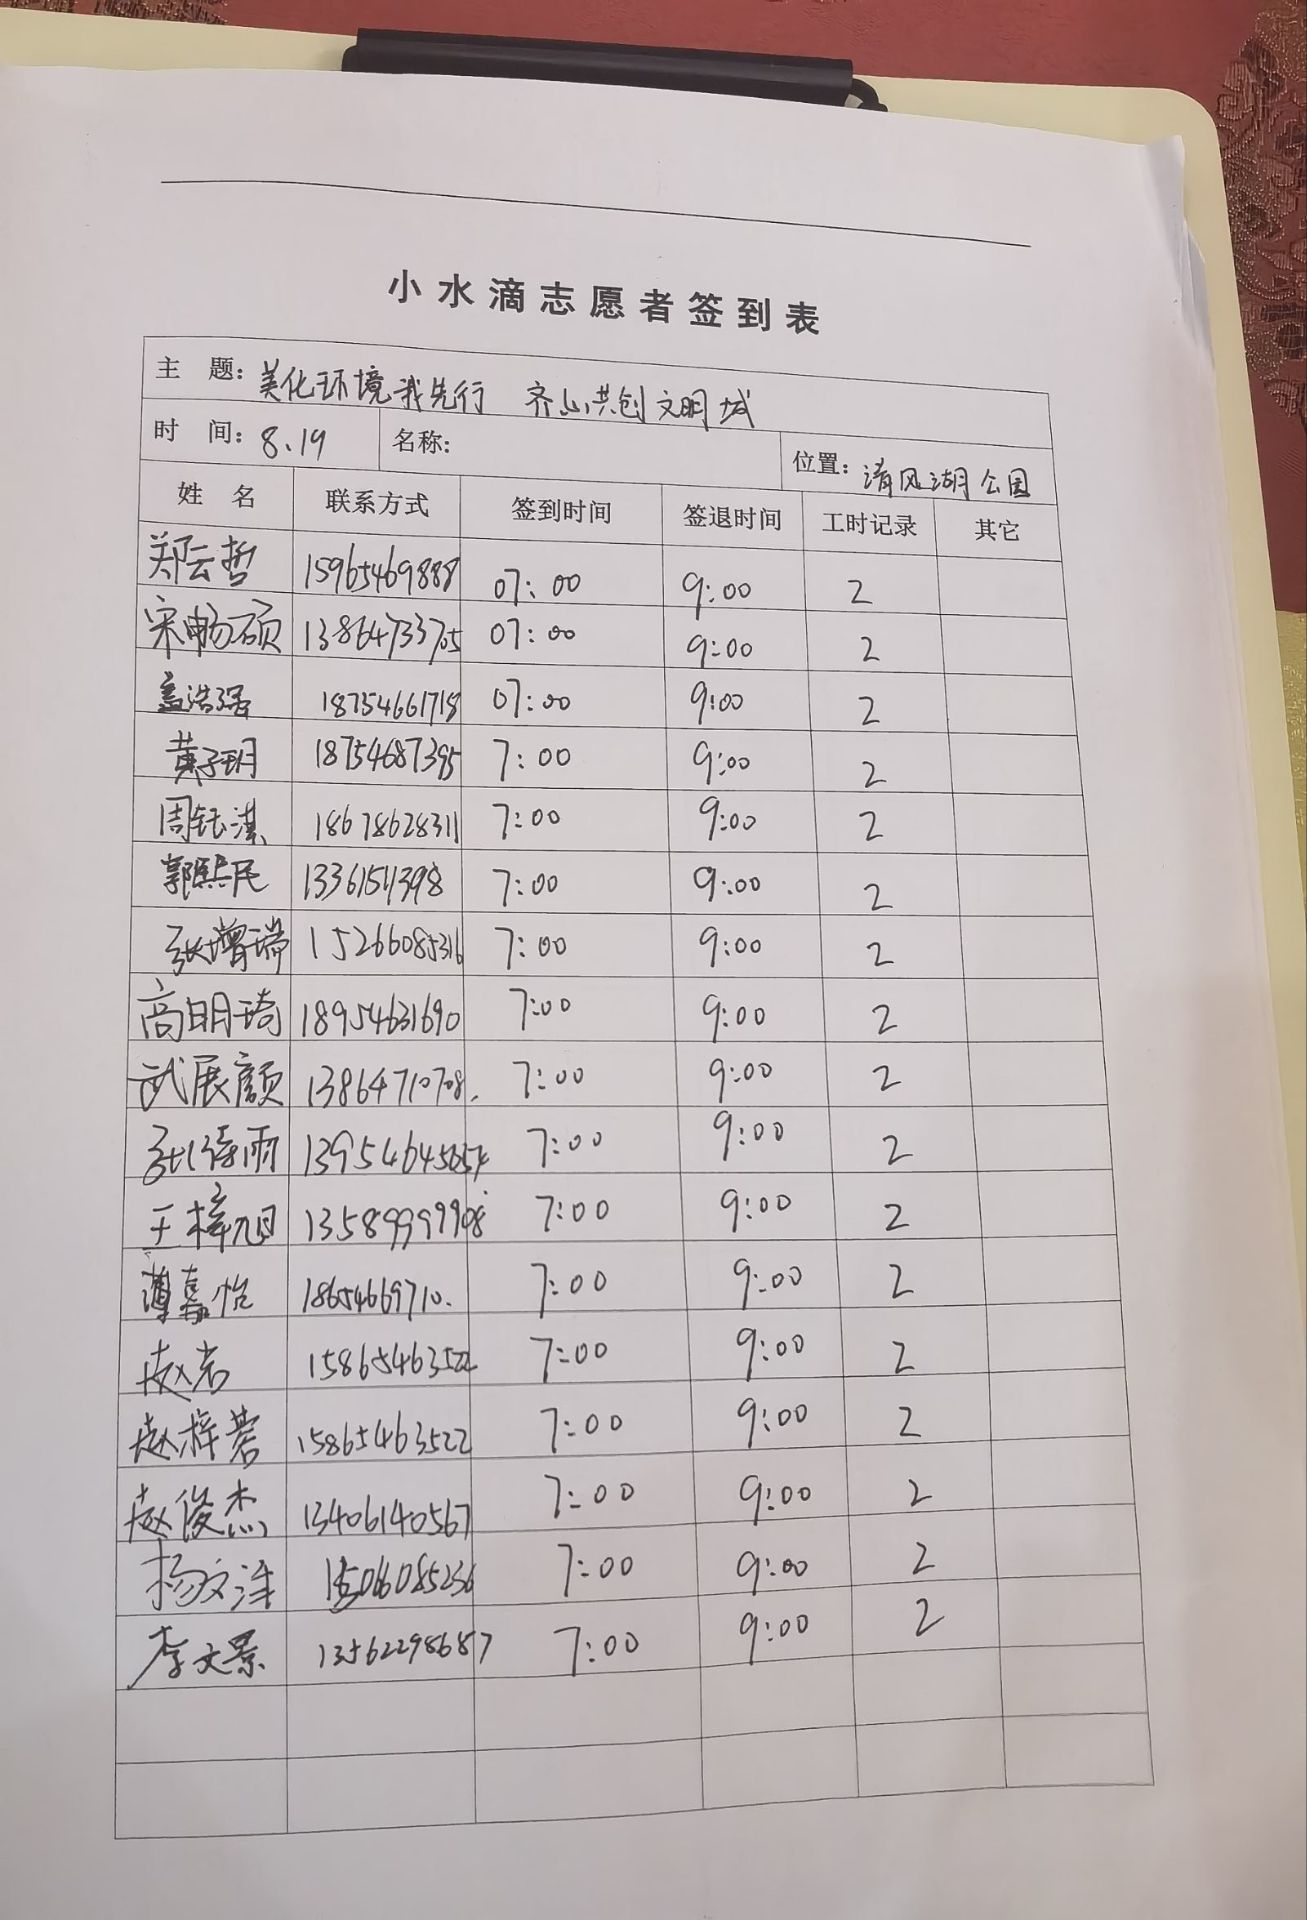 小水滴志愿者签到表
主 题: 美化环境我先行 齐心共创文明城
时 间: 8.19 名称: 位置: 清风湖公园
姓 名 联系方式 签到时间 签退时间 工时记录 其它
郑云哲 15965469888 07:00 9:00 2
宋畅硕 13864733705 07:00 9:00 2
孟浩强 18754661718 07:00 9:00 2
黄子玥 18754687395 7:00 9:00 2
周钰淇 18678628311 7:00 9:00 2
郭熙民 13361511398 7:00 9:00 2
张增瑞 15266085316 7:00 9:00 2
高明琦 18954631690 7:00 9:00 2
武展颜 13864710708. 7:00 9:00 2
7:00 9:00 2
王梓旭 7:00 9:00 2
薄嘉怡 18654669710. 7:00 9:00 2
赵岩 15865463522 7:00 9:00 2
赵梓茗 15865463522 7:00 9:00 2
赵俊杰 13406140567 7:00 9:00 2
7:00 9:00 2
李文景 13562298687 7:00 9:00 2